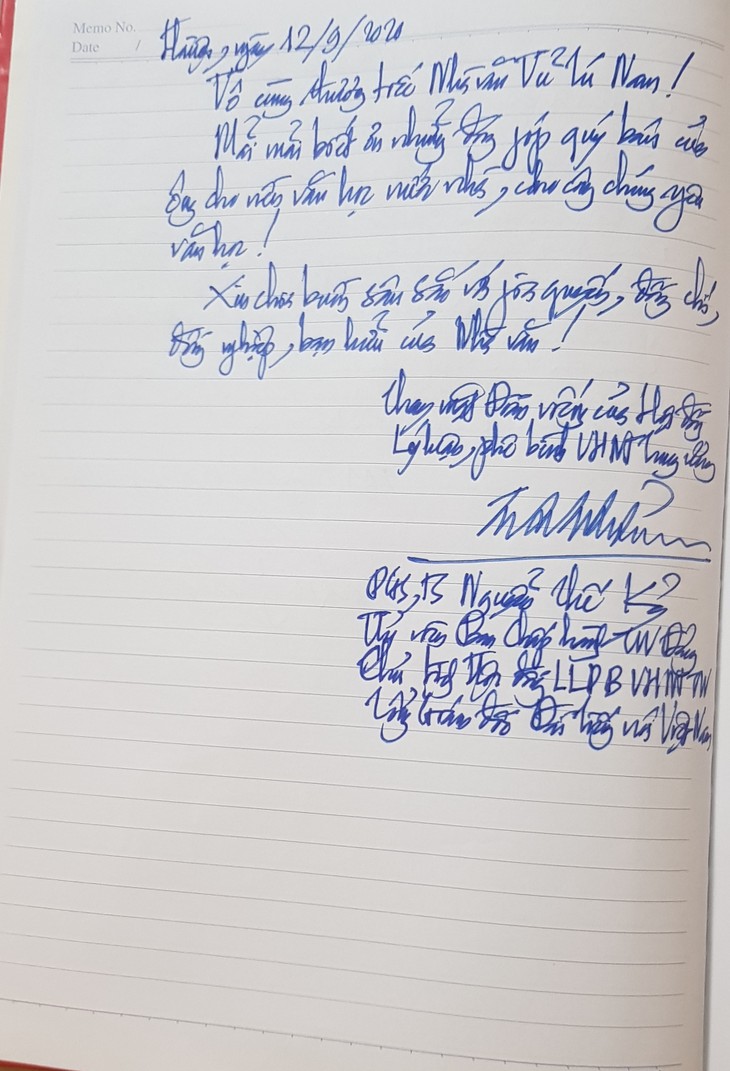 Memo No.
Date /
Hà Nội, ngày 12/9/2020
Vô cùng thương tiếc Nhà văn Vũ Tú Nam!
Mãi mãi biết ơn những đóng góp quý báu của
ông cho nền văn học nước nhà, cho công chúng yêu
văn học!
Xin chia buồn sâu sắc với gia quyến, đồng chí,
đồng nghiệp, bạn hữu của Nhà văn!
Thay mặt Đoàn viếng của Hội đồng
Lý luận, phê bình VHNT Trung ương
PGS, TS Nguyễn Thế Kỷ
Ủy viên Ban Chấp hành TW Đảng
Chủ tịch Hội đồng LLPB VHNT TW
Tổng Giám đốc Đài Tiếng nói Việt Nam